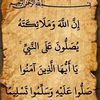 إِنَّ اللَّهَ وَمَلَائِكَتَهُ
يُصَلُّونَ عَلَى النَّبِيِّ
يَا أَيُّهَا الَّذِينَ آمَنُوا
صَلُّوا عَلَيْهِ وَسَلِّمُوا تَسْلِيمًا